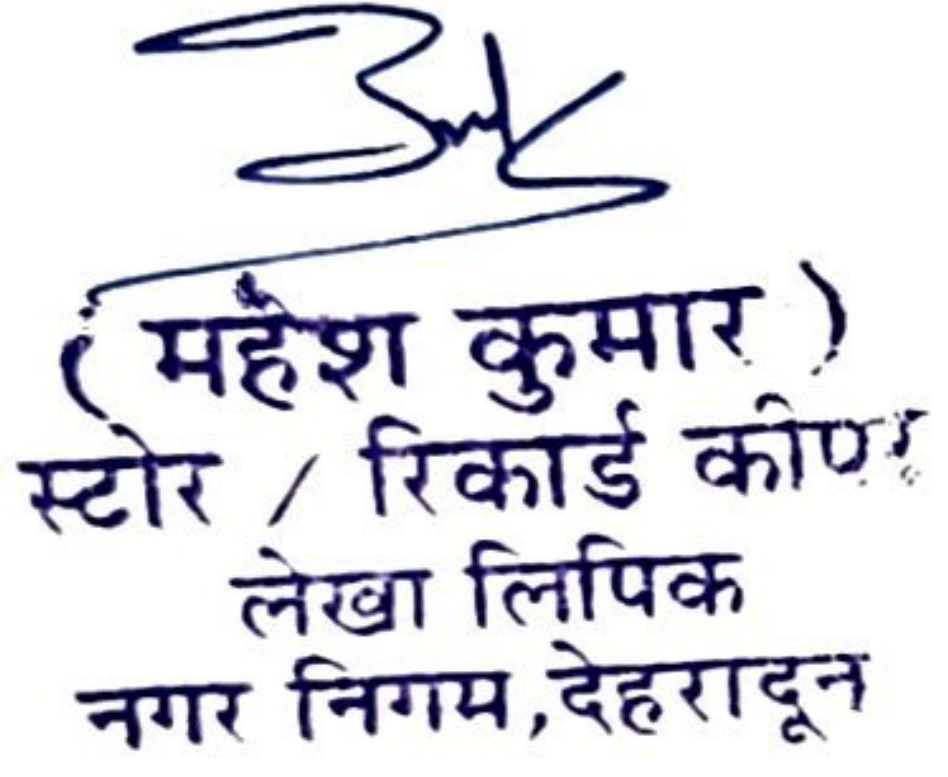 (महेश कुमार)
स्टोर / रिकार्ड कीपर
लेखा लिपिक
नगर निगम,देहरादून